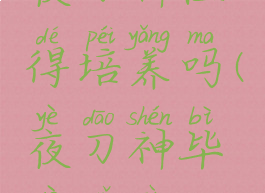 dé péi yǎng ma
得培养吗(
yè dāo shén bì
夜刀神毕